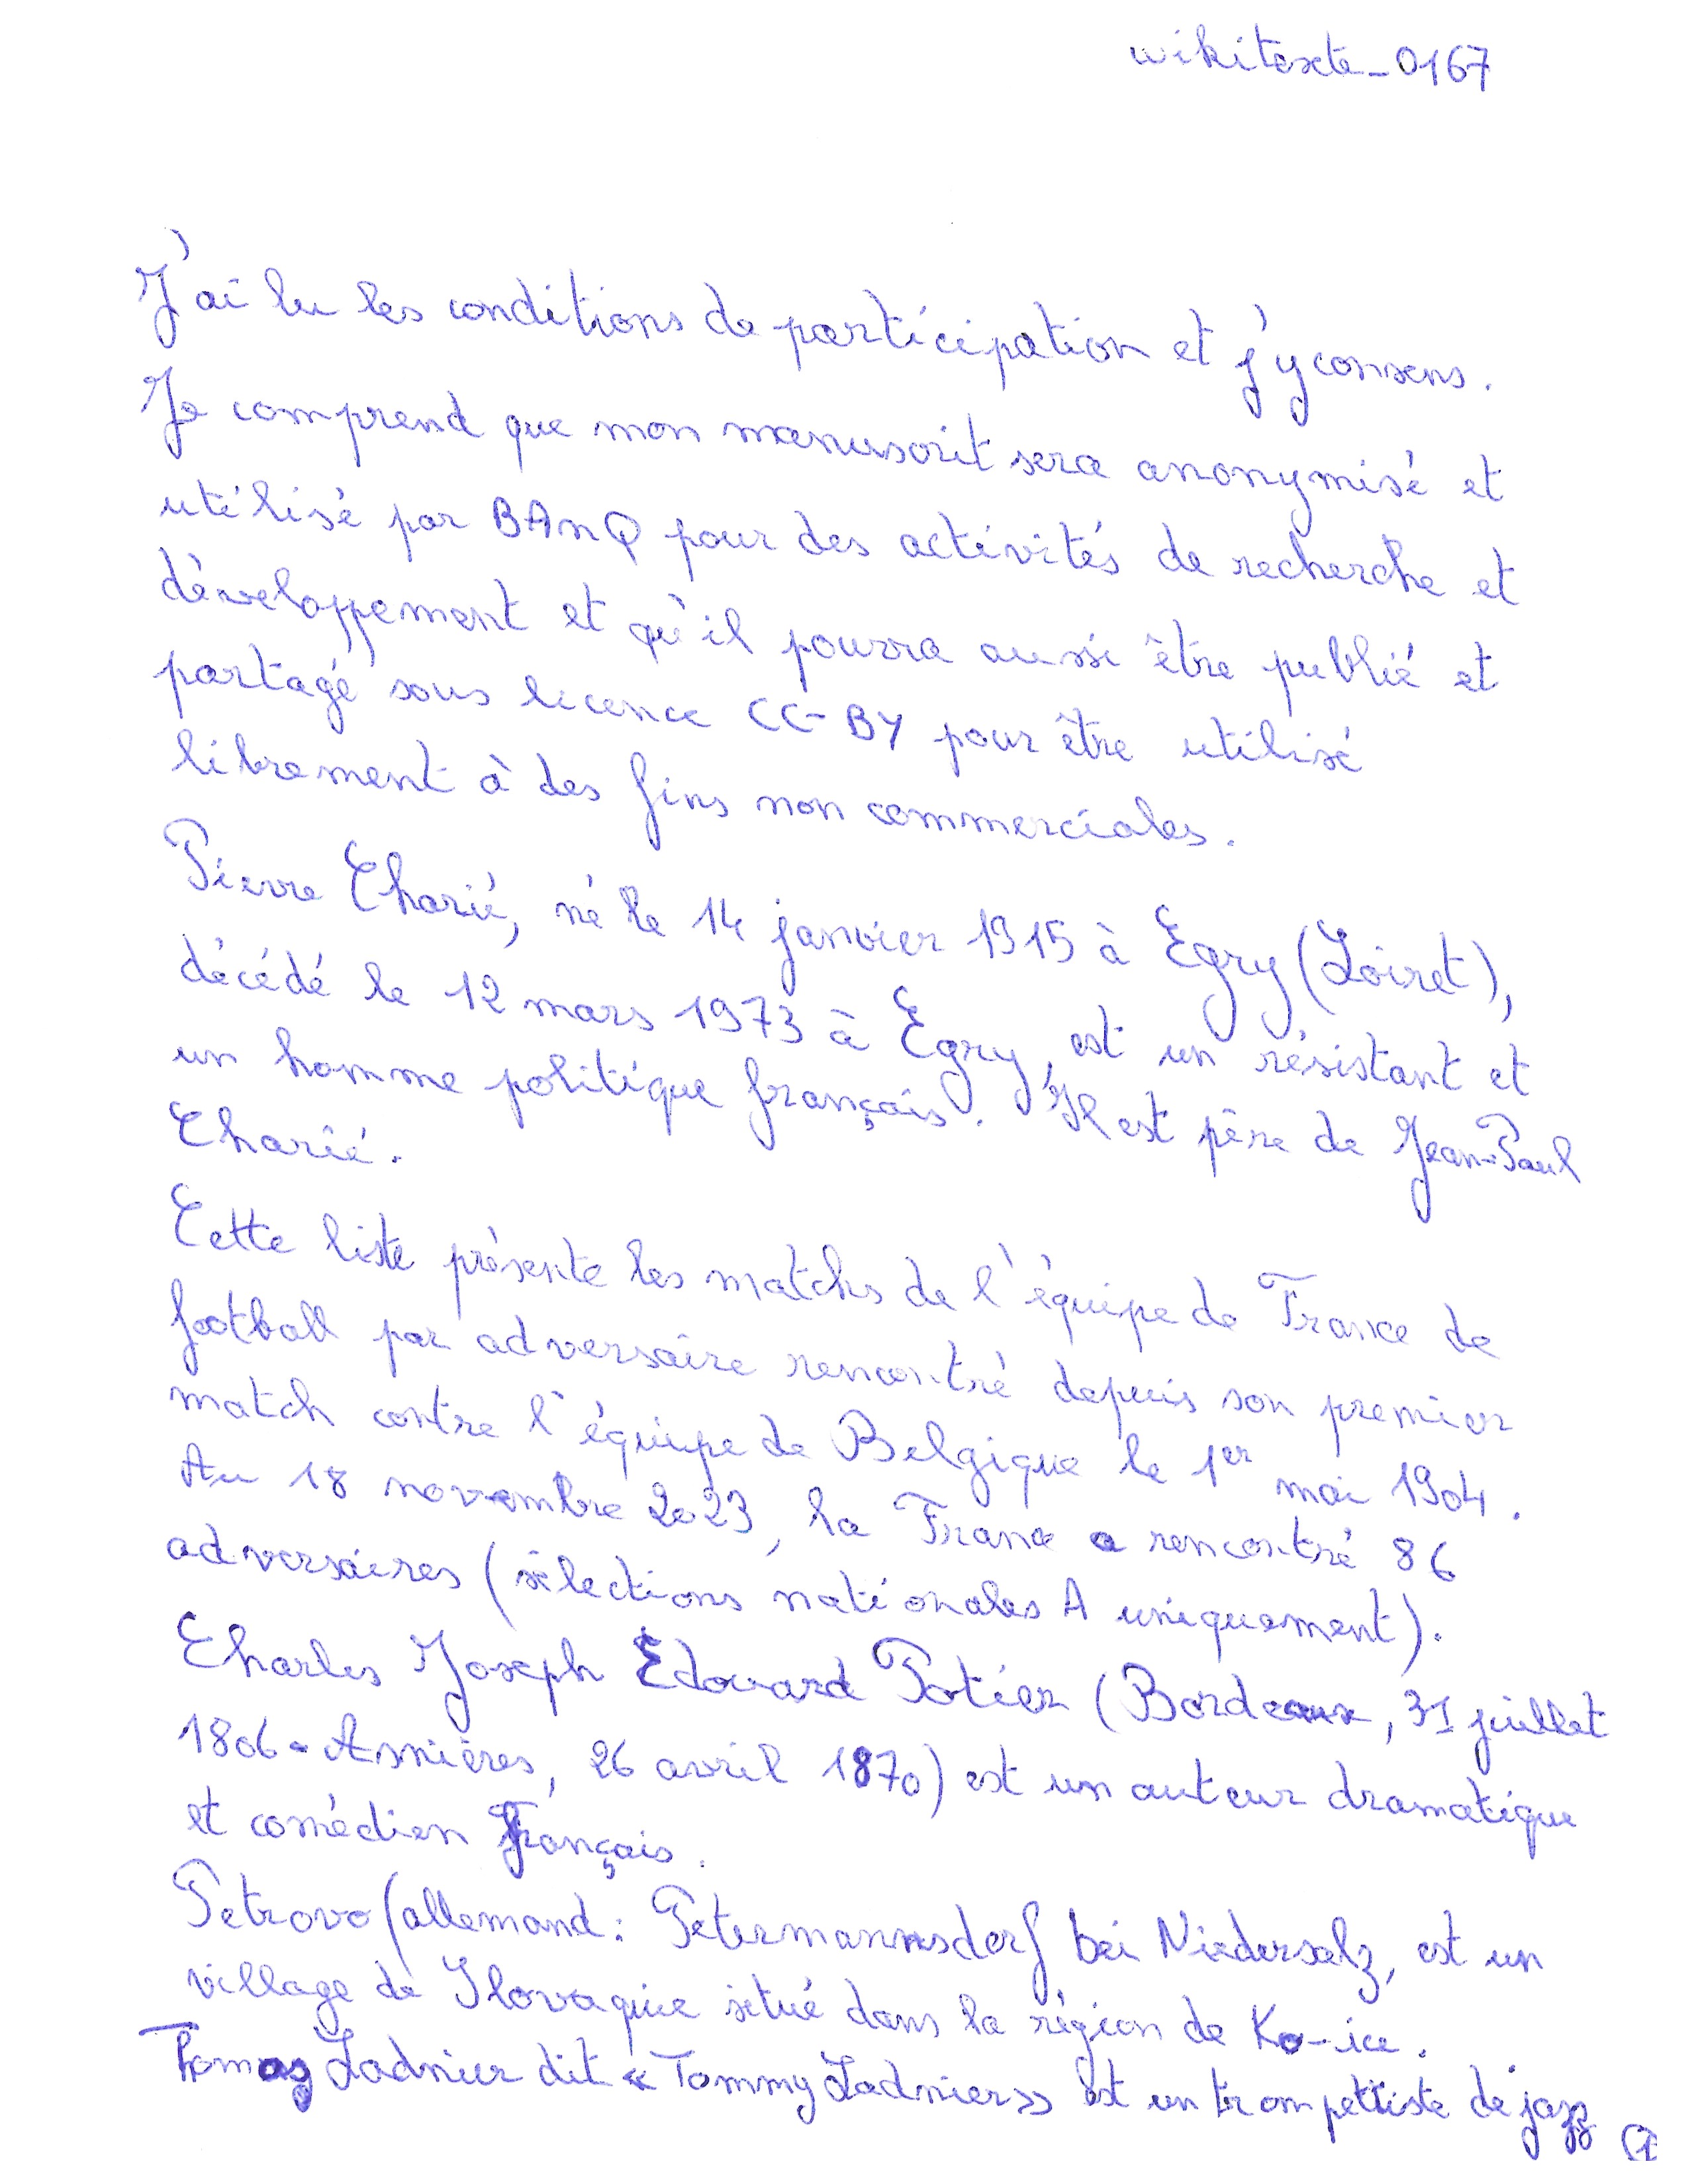 wikitexte_0167
J'ai lu les conditions de participation et j'y consens.
Je comprend que mon manuscrit sera anonymisé et
utilisé par BAnQ pour des activités de recherche et
développement et qu'il pourra aussi être publié et
partagé sous licence CC-BY pour être utilisé
librement à des fins non commerciales.
Pierre Charié, né le 14 janvier 1915 à Egry (Loiret),
décédé le 12 mars 1973 à Egry, est un résistant et
un homme politique français. Il est père de Jean-Paul
Charié.
Cette liste présente les matchs de l'équipe de France de
football par adversaire rencontré depuis son premier
match contre l'équipe de Belgique le 1er mai 1904.
Au 18 novembre 2023, la France a rencontré 86
adversaires (sélections nationales A uniquement).
Charles Joseph Edouard Potier (Bordeaux, 31 juillet
1806 - Asnières, 26 avril 1870) est un auteur dramatique
et comédien français.
Petrovo (allemand: Petermannsdorf bei Niedersalz, est un
village de Slovaquie situé dans la région de Ko-ice.
Thomas Ladnier dit « Tommy Ladnier » est un trompettiste de jazz